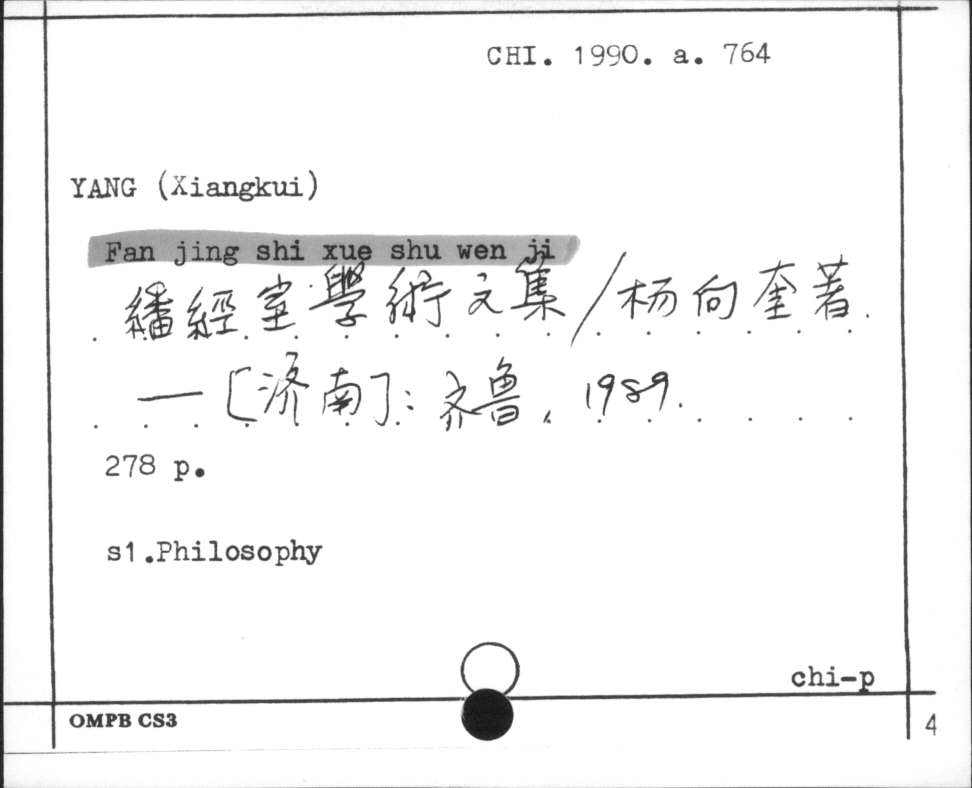 CHI. 1990. a. 764
YANG (Xiangkui)
Fan jing shi xue shu wen ji
繙經室學術文集/杨向奎著.
—[济南]:齐鲁, 1989.
278 p.
s1.Philosophy
chi-p
OMPB CS3
4